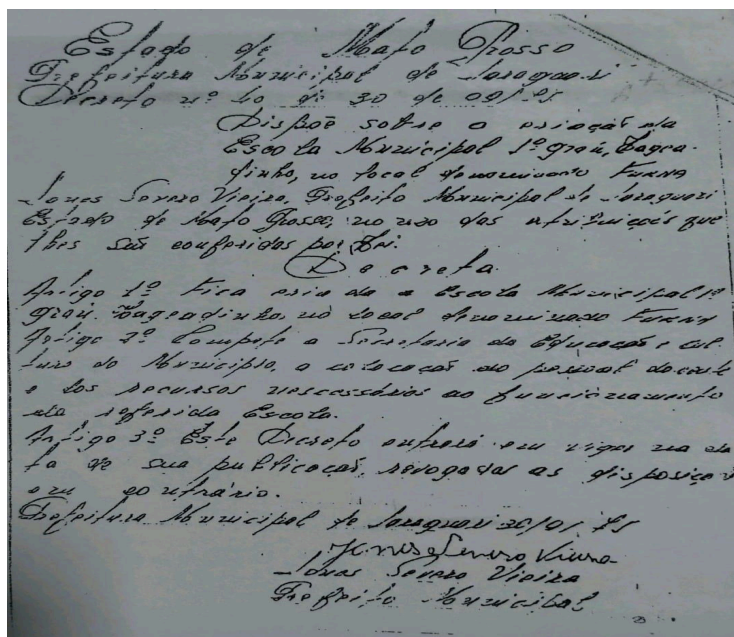 Estado de Mato Grosso
Prefeitura Municipal de Jaraguari
Decreto nº 40 de 30 de
Dispoê sobre a criaçaõ da
Escola Municipal 1º grau,
dinho, no local denominado FURNA
Jonas Severo Vieira, Prefeito Municipal de Jaraguari
Estado de Mato Grosso, no uso das atribuiçoẽs que
lhes saõ conferidas por Lei.
Decreta
Artigo 1º Fica criada a Escola Municipal 1º
grau no Local denominado FURNA
Artigo 2º Compete a Secretaria de Educaçaõ e Cul
tura do Municipio, a colocaçaõ do pessoal docente
e dos recursos nescessários ao funcionamento
da referida Escola.
Artigo 3º Este Decreto entrará em vigor na da
ta de sua publicaçaõ, revogadas as disposiçoẽ
em contrário.
Prefeitura Municipal de Jaraguari
Jonas Severo Vieira
Jonas Severo Vieira
Prefeito Municipal